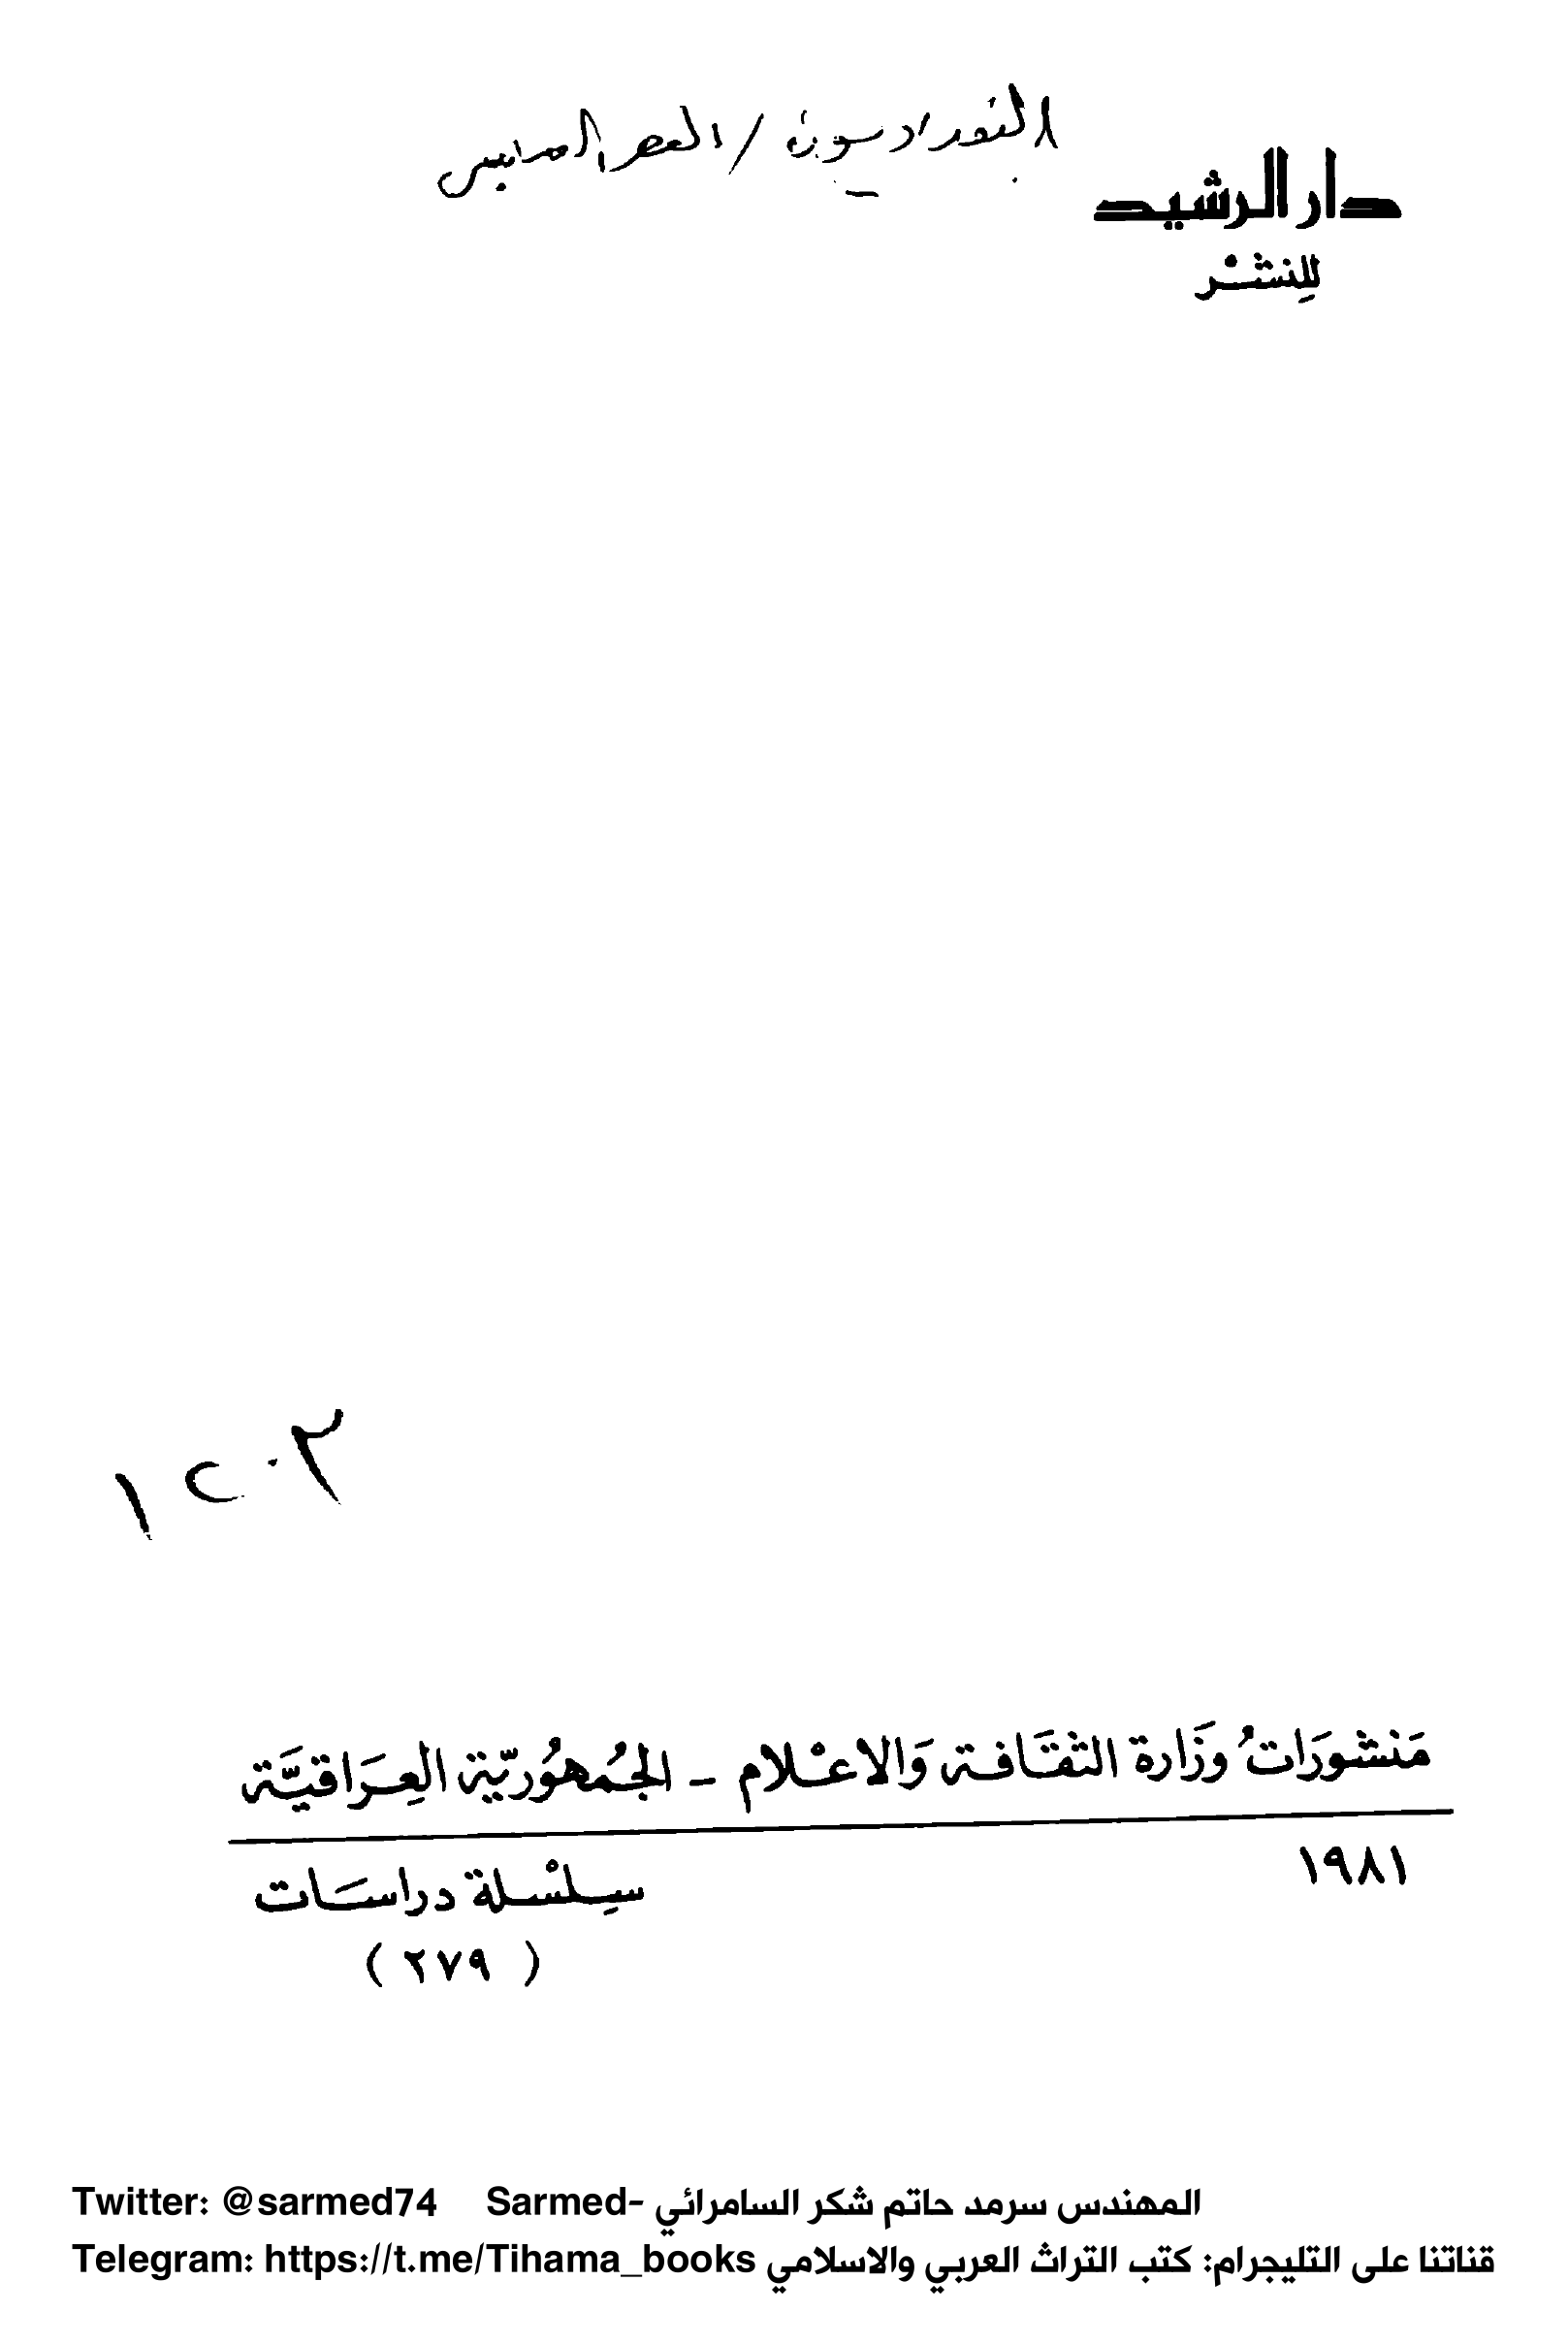 البغداديون / العصر العباسي
دار الرشيد
للِنشْر
١٢٠٣
مَنشورَاتُ وزَارة الثقَافة وَالاعْلام - الجُمهُوريّة العِرَاقيَّة
١٩٨١
سِلسْلة دراسَات
( ٢٧٩ )
Twitter: @sarmed74 Sarmed- المهندس سرمد حاتم شكر السامرائي
Telegram: https://t.me/Tihama_books قناتنا على التليجرام: كتب التراث العربي والاسلامي